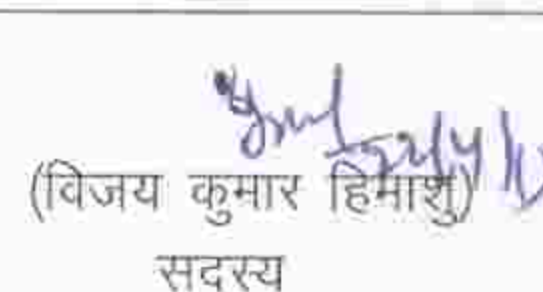 (विजय कुमार हिमांशु)
सदस्य